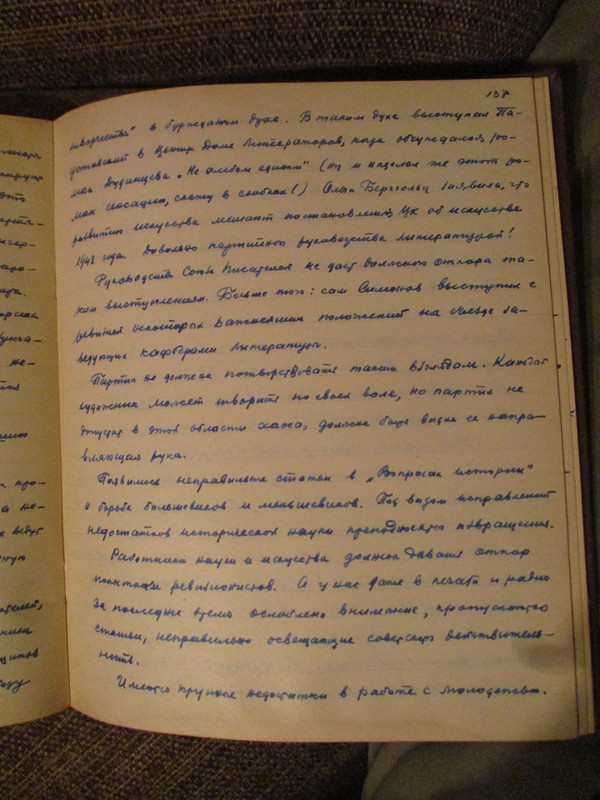 137
творчества" в буржуазном духе. В таком духе выступал Па-
устовский в Центр. Доме Литераторов, когда обсуждался ро-
ман Дудинцева „Не хлебом единым" (ну и наделал же этот ро-
ман сенсации, скажу в скобках!) Ольга Берггольц заявила, что
развитию искусства мешают постановления ЦК об искусстве
1948 года. Довольно партийного руководства литературой!
Руководство Союза Писателей не дает должного отпора та-
ким выступлениям. Больше того: сам Симонов выступил с
ревизией некоторых важнейших положений на съезде за-
ведующих кафедрами литературы.
Партия не должна потворствовать таким взглядам. Каждый
художник может творить по своей воле, но партия не
допустит в этой области хаоса, должна быть видна ее напра-
вляющая рука.
Появились неправильные статьи в „Вопросах истории"
о борьбе большевиков и меньшевиков. Под видом исправлений
недостатков исторической науки преподносятся извращения.
Работники науки и искусства должны давать отпор
ревизионистов. А у нас даже в печати и радио
за последнее время ослаблено внимание, пропускаются
статьи, неправильно освещающие советскую действитель-
ность.
Имеются крупные недостатки в работе с молодежью.